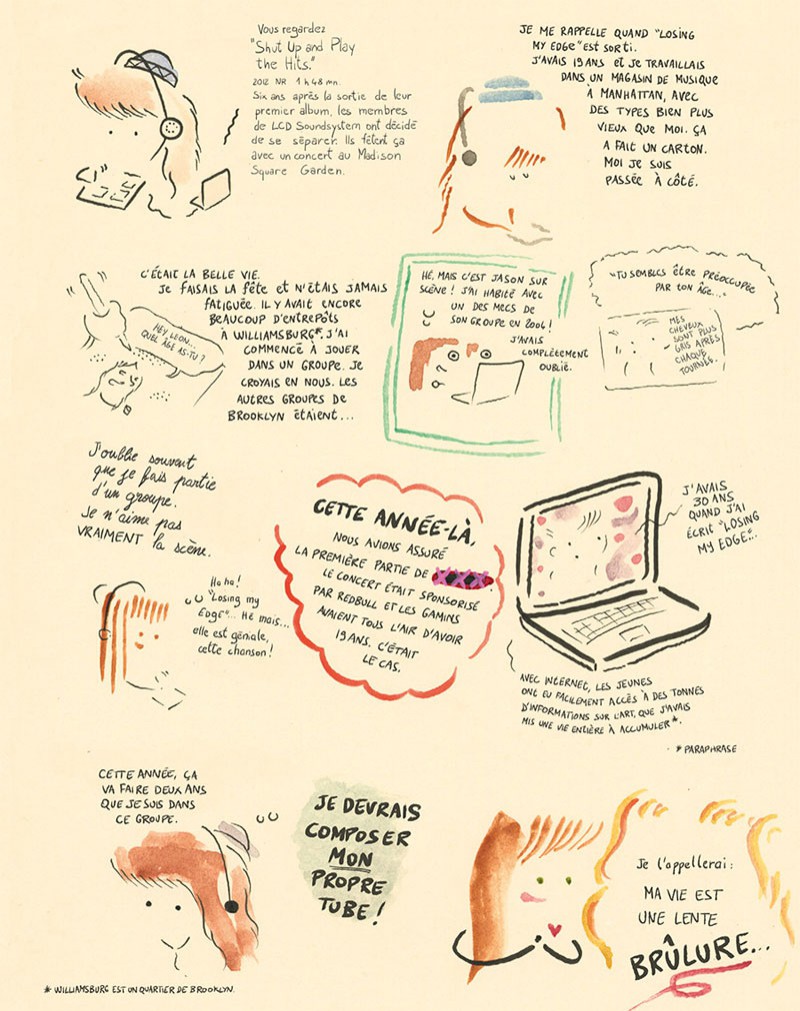 Vous regardez
"Shut Up and Play
the Hits."
2012 NR 1h48mn.
Six ans après la sortie de leur
premier album, les membres
de LCD Soundsystem ont décidé
de se séparer. Ils fêtent ça
avec un concert au Madison
Square Garden.
JE ME RAPPELLE QUAND "LOSING
MY EDGE" EST SORTI.
J'AVAIS 19 ANS ET JE TRAVAILLAIS
DANS UN MAGASIN DE MUSIQUE
À MANHATTAN, AVEC
DES TYPES BIEN PLUS
VIEUX QUE MOI. ÇA
A FAIT UN CARTON.
MOI JE SUIS
PASSÉE À CÔTÉ.
C'ÉTAIT LA BELLE VIE.
JE FAISAIS LA FÊTE ET N'ÉTAIS JAMAIS
FATIGUÉE. IL Y AVAIT ENCORE
BEAUCOUP D'ENTREPÔTS
À WILLIAMSBURG*. J'AI
COMMENCÉ À JOUER
DANS UN GROUPE. JE
CROYAIS EN NOUS. LES
AUTRES GROUPES DE
BROOKLYN ÉTAIENT...
HEY LEON...
QUEL ÂGE AS-TU ?
HÉ, MAIS C'EST JASON SUR
SCÈNE ! J'AI HABITÉ AVEC
UN DES MECS DE
SON GROUPE EN 2006 !
J'AVAIS
COMPLÈTEMENT
OUBLIÉ.
"TU SEMBLES ÊTRE PRÉOCCUPÉE
PAR TON ÂGE..."
MES
CHEVEUX
SONT PLUS
GRIS APRÈS
CHAQUE
TOURNÉE.
J'oublie souvent
que je fais partie
d'un groupe.
Je n'aime pas
VRAIMENT la scène.
Ha ha !
"Losing my
Edge"... Hé mais...
elle est géniale,
cette chanson !
CETTE ANNÉE-LÀ,
NOUS AVIONS ASSURÉ
LA PREMIÈRE PARTIE DE
LE CONCERT ÉTAIT SPONSORISÉ
PAR REDBULL ET LES GAMINS
AVAIENT TOUS L'AIR D'AVOIR
19 ANS. C'ÉTAIT
LE CAS.
J'AVAIS
30 ANS
QUAND J'AI
ÉCRIT "LOSING
MY EDGE"...
AVEC INTERNET, LES JEUNES
ONT EU FACILEMENT ACCÈS À DES TONNES
D'INFORMATIONS SUR L'ART, QUE J'AVAIS
MIS UNE VIE ENTIÈRE À ACCUMULER*.
* PARAPHRASE
CETTE ANNÉE, ÇA
VA FAIRE DEUX ANS
QUE JE SUIS DANS
CE GROUPE.
JE DEVRAIS
COMPOSER
MON
PROPRE
TUBE !
Je l'appellerai :
MA VIE EST
UNE LENTE
BRÛLURE...
* WILLIAMSBURG EST UN QUARTIER DE BROOKLYN.